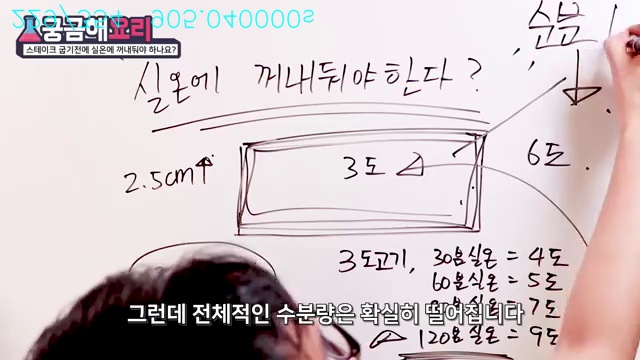 궁금해요리
스테이크 굽기전에 실온에 꺼내둬야 하나요?
수분
실온에 꺼내둬야한다?
2.5cm↑
3도
6도
3도고기, 30분실온 = 4도
60분실온 = 5도
= 7도
120분실온 = 9도
그런데 전체적인 수분량은 확실히 떨어집니다